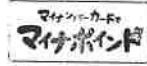 マイナンバーカードで
マイナポイント